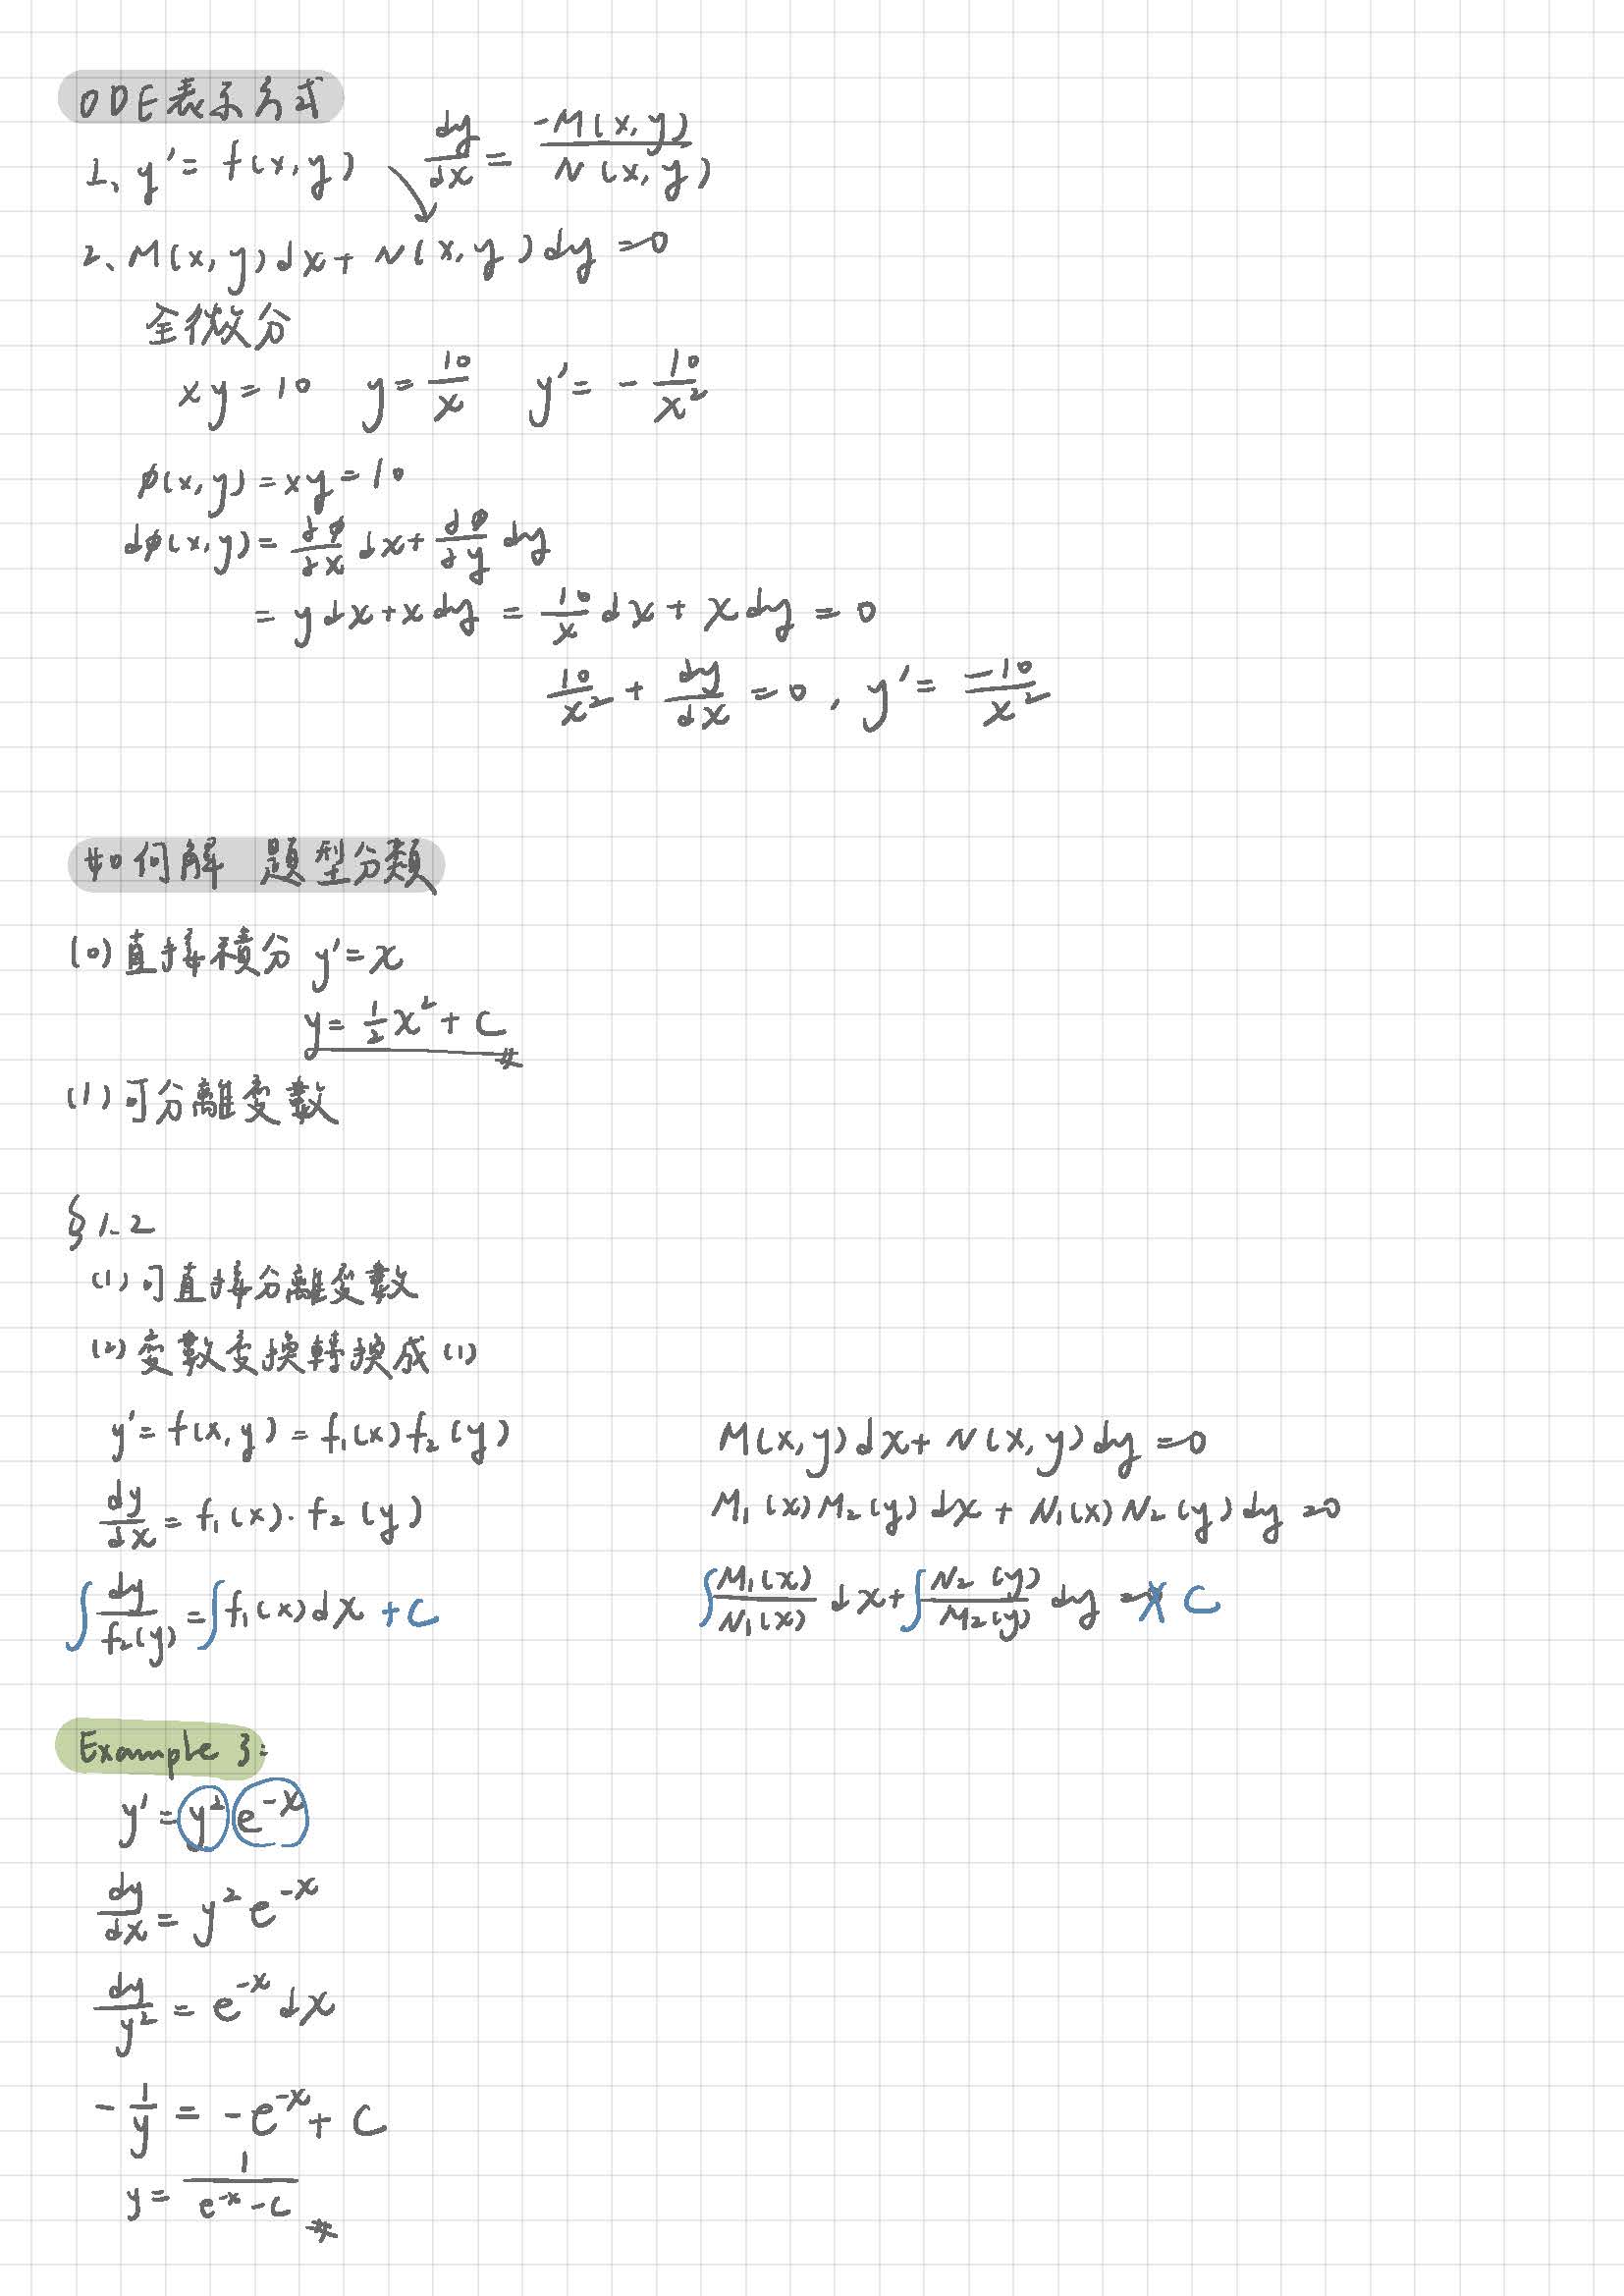 ODE表示方式
1、y' = f(x,y)  dy/dx = -M(x,y)/N(x,y)
2、M(x,y)dx + N(x,y)dy = 0
全微分
xy = 10  y = 10/x  y' = -10/x²
ϕ(x,y) = xy = 10
dϕ(x,y) = ∂ϕ/∂x dx + ∂ϕ/∂y dy
= ydx + xdy = 10/x dx + xdy = 0
10/x² + dy/dx = 0 , y' = -10/x²
如何解 題型分類
(0) 直接積分 y' = x
y = 1/2 x² + C #
(1) 可分離變數
§1.2
(1) 可直接分離變數
(2) 變數變換轉換成(1)
y' = f(x,y) = f₁(x)f₂(y)
dy/dx = f₁(x)·f₂(y)
∫ dy/f₂(y) = ∫ f₁(x)dx + C
M(x,y)dx + N(x,y)dy = 0
M₁(x)M₂(y)dx + N₁(x)N₂(y)dy = 0
∫ M₁(x)/N₁(x) dx + ∫ N₂(y)/M₂(y) dy = C
Example 3:
y' = y² e^-x
dy/dx = y² e^-x
dy/y² = e^-x dx
-1/y = -e^-x + C
y = 1/(e^-x - C) #